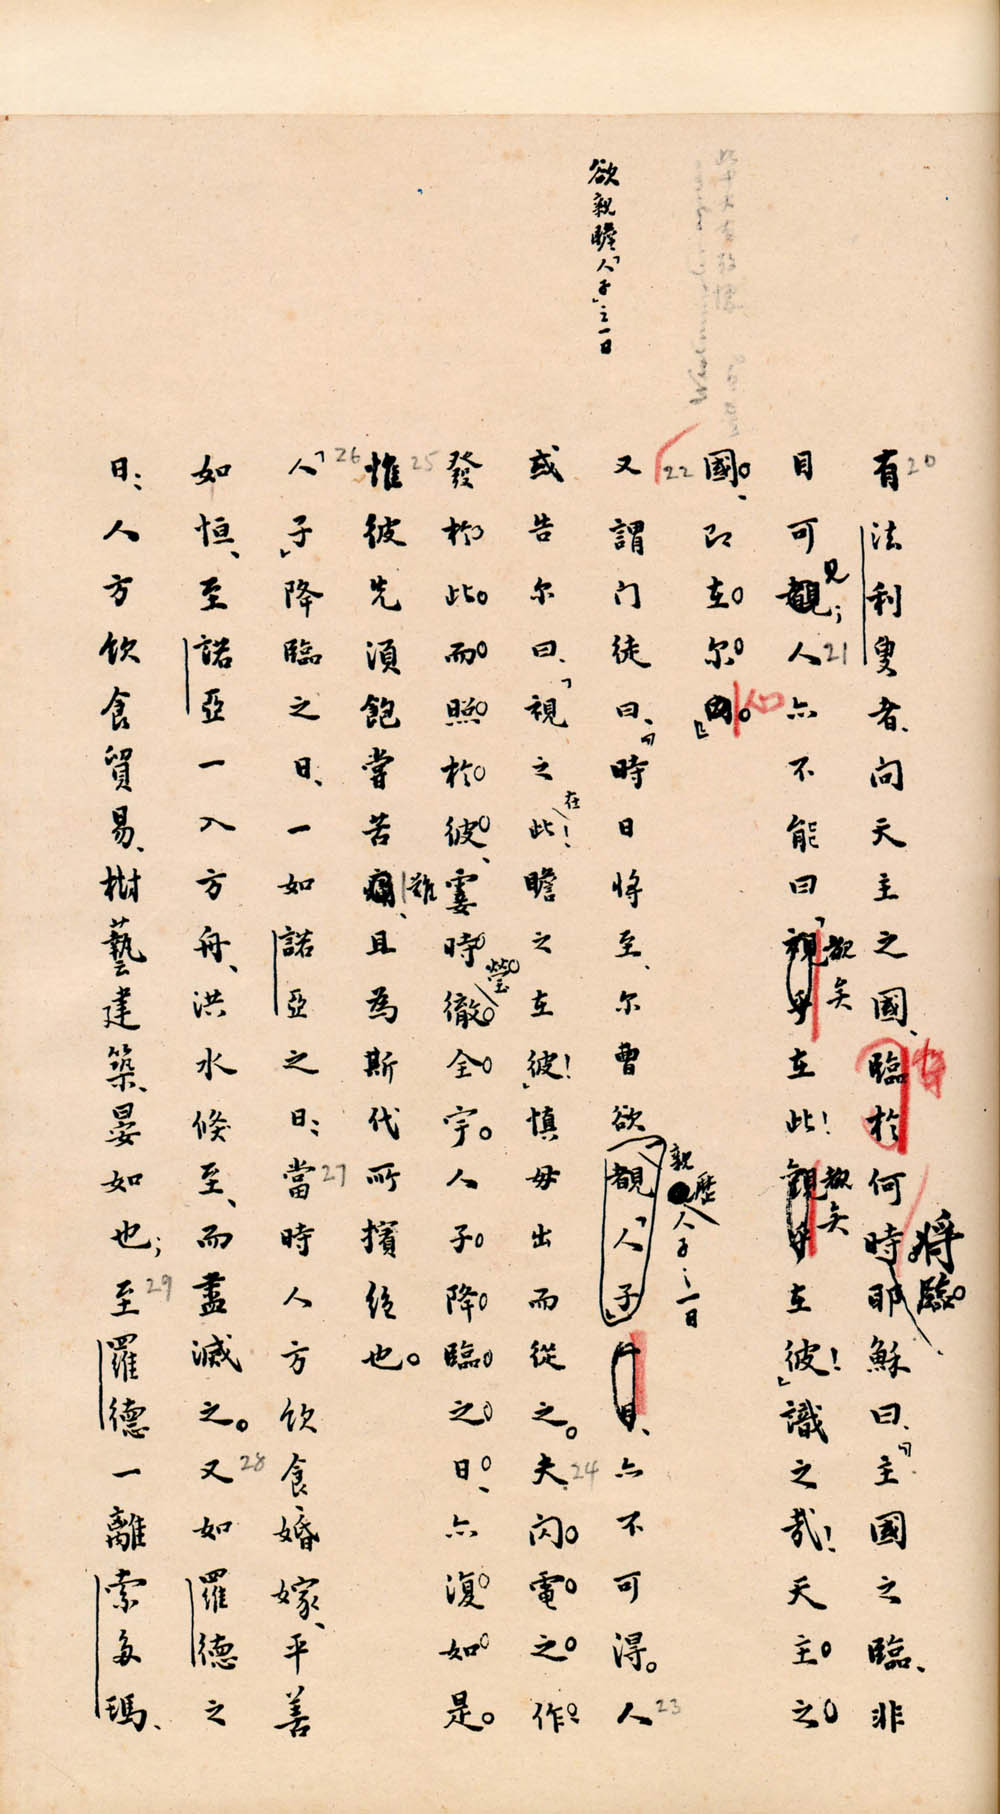 欲親瞻「人子」之一日
20 有法利叟者、向天主之國、臨於何時耶、穌曰、『主國之臨、非
將臨
目可覩見；21 人亦不能曰「視乎在此！觀乎在彼！」識之哉！天主之
教矣
教矣
國、即在爾內。』
心
22 又謂门徒曰、『時日將至、尔曹欲覩「人子」一日、亦不可得。23 人
親歷人子之一日
或告尔曰、「視之在此！瞻之在彼！」慎毋出而從之。24 夫闪電之作、
發於此而照於彼、霎時徹瑩全宇。人子降臨之日、亦復如是。
25 惟彼先須飽嘗苦難、且為斯代所擯絕也。
26 「人子」降臨之日、一如諾亞之日：27 當時人方饮食婚嫁、平善
如恒、至諾亞一入方舟、洪水倏至、而盡滅之。28 又如羅德之
日：人方饮食貿易、樹藝建築、晏如也；29 至羅德一離索多瑪、